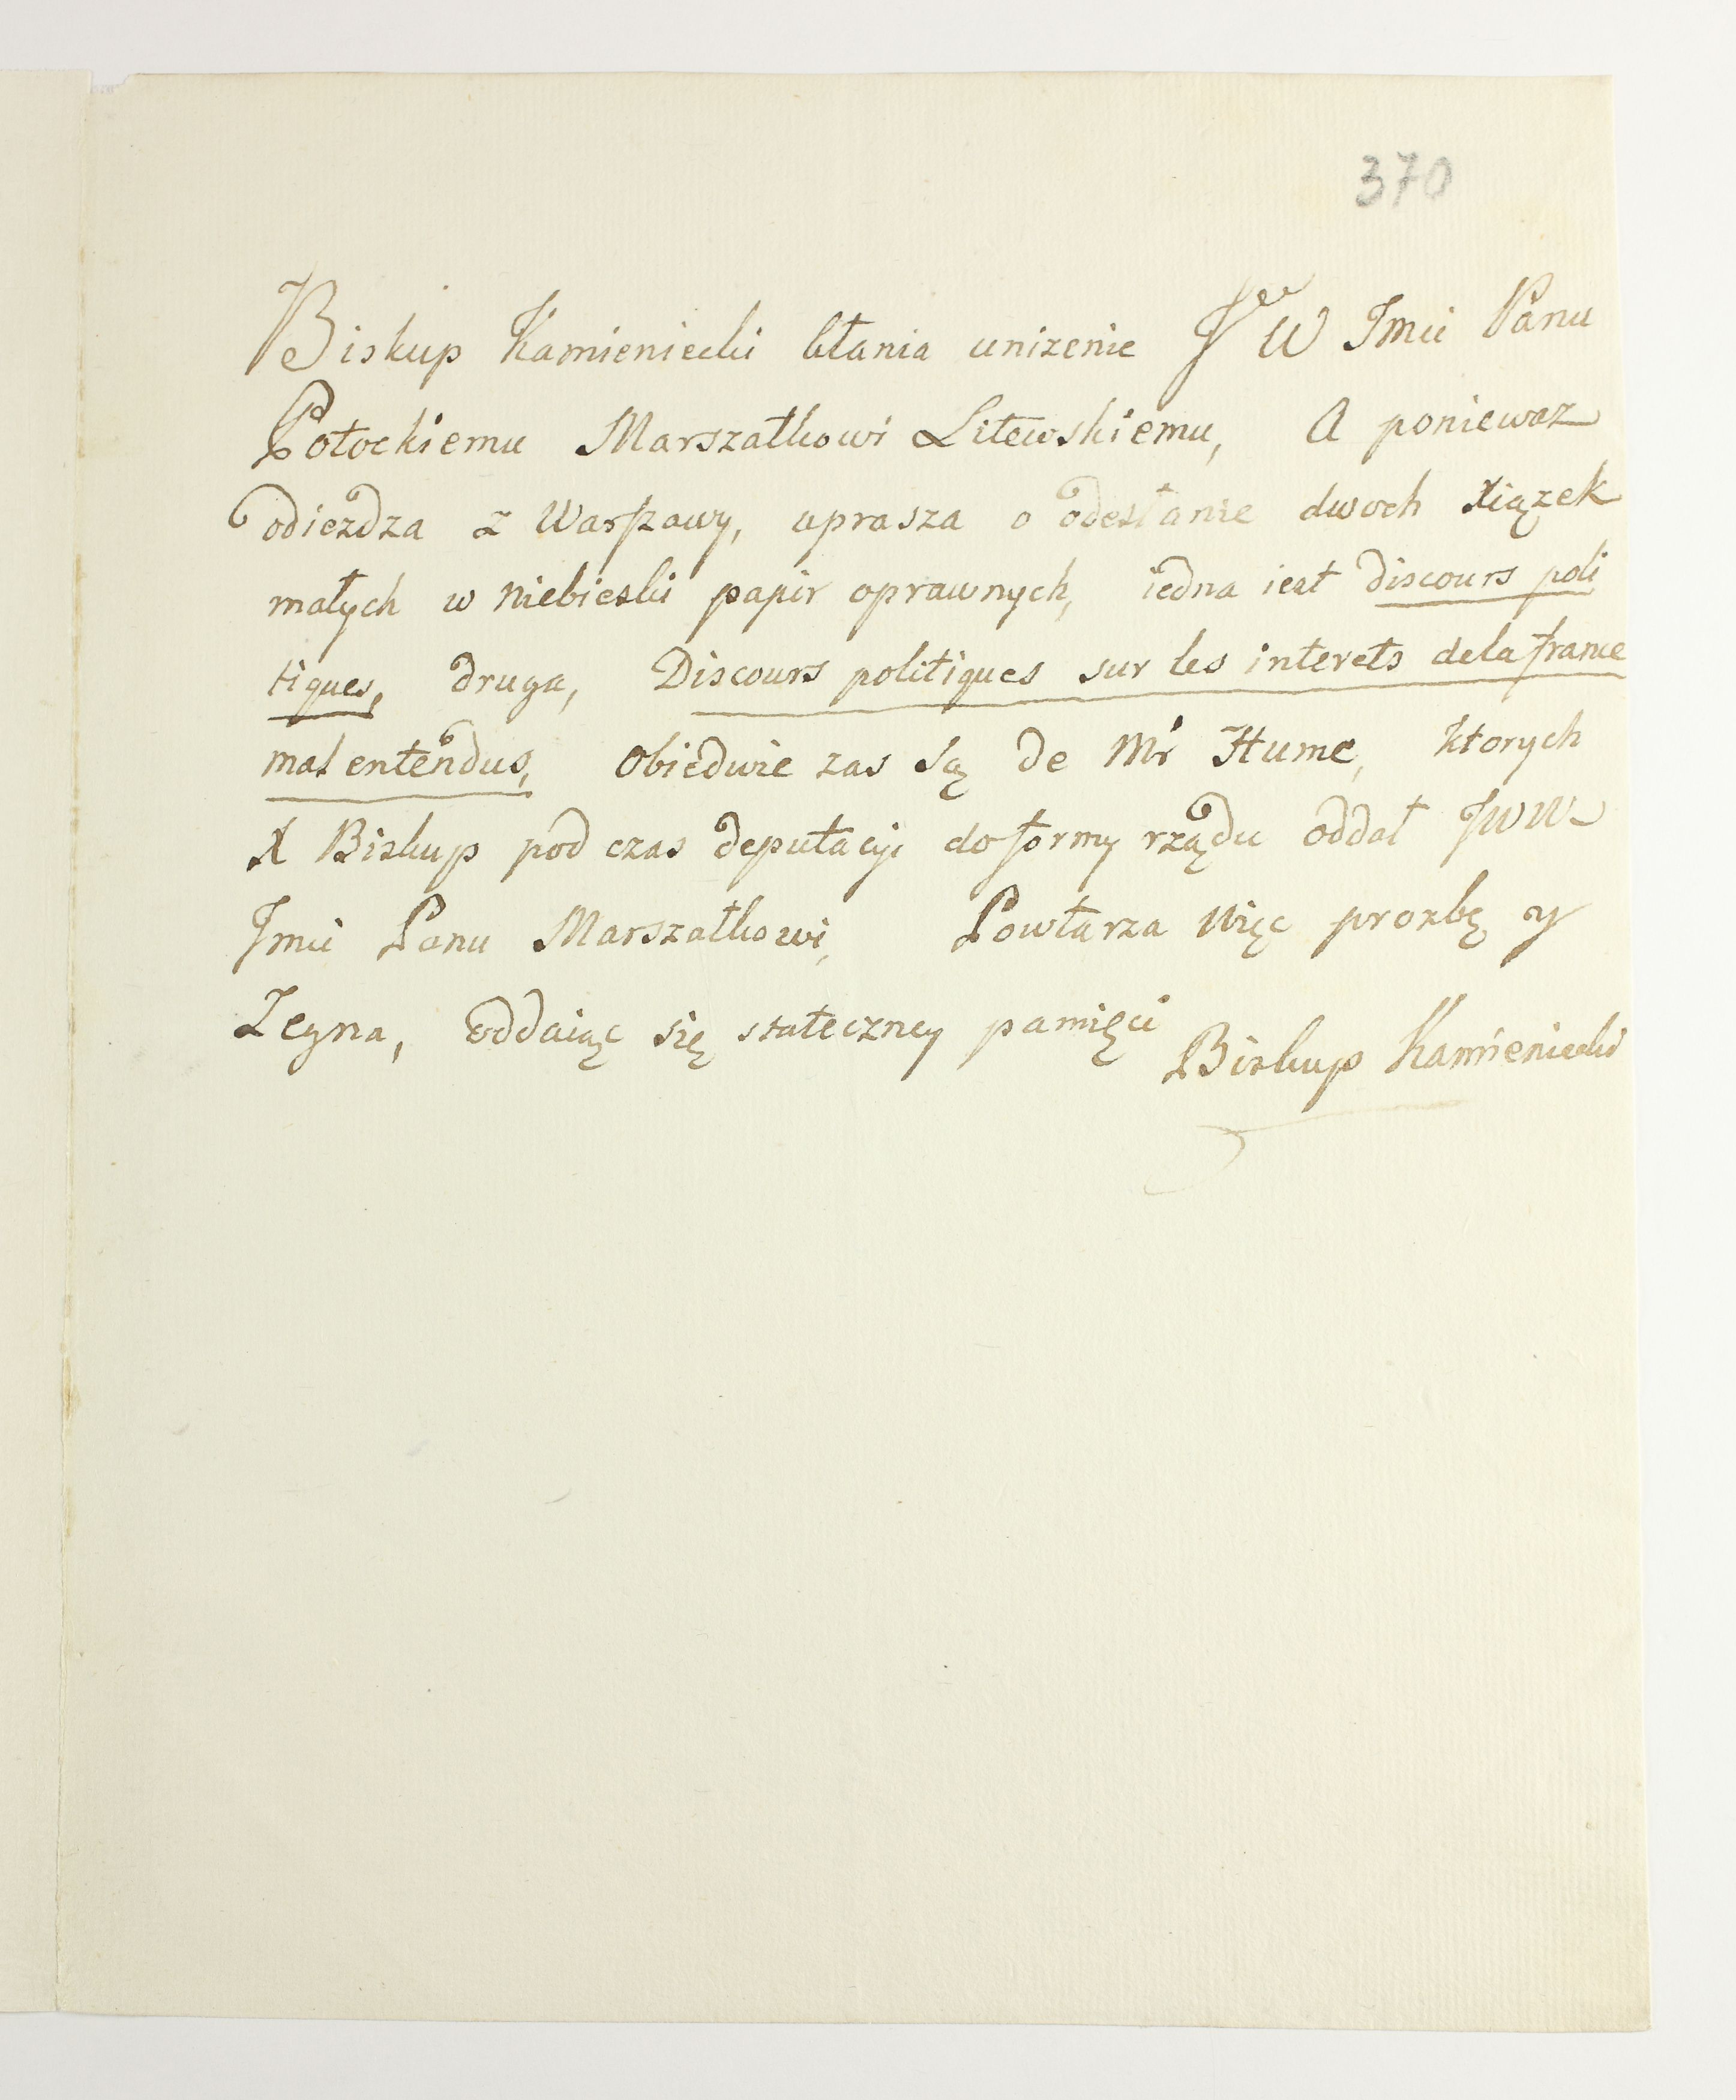 370
Biskup Kamieniecki kłania unizenie JW Jmci Panu
Potockiemu Marszałkowi Litewskiemu, A poniewaz
odiezdza z Warszawy, uprasza o odesłanie dwoch Xiązek
małych w niebieski papir oprawnych, iedna iest discours poli
tiques, druga, Discours politiques sur les interets dela france
mal entendus, Obiedwie zas są de Mr Hume, ktorych
X Biskup pod czas deputacyi do formy rządu oddał JWW
Jmci Panu Marszałkowi, Powtarza więc prozbę y
Zegna, oddaiąc się stateczney pamięci
Biskup Kamieniecki